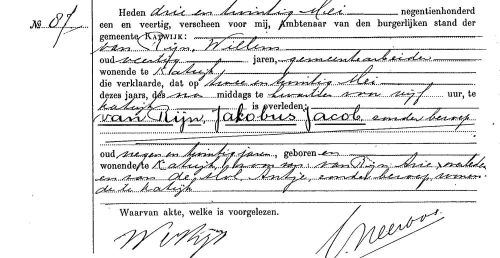 № 87
Heden drie en twintig Mei negentienhonderd
een en veertig, verscheen voor mij, Ambtenaar van den burgerlijken stand der
gemeente KATWIJK:
van Rijn, Willem
oud veertig jaren, gemeentearbeider
wonende te Katwijk
die verklaarde, dat op twee en twintig Mei
dezes jaars, des na middags te kwartier voor vijf uur, te
Katwijk is overleden:
van Rijn, Jakobus Jacob, zonder beroep
oud negen en twintig jaren, geboren en
wonende te Katwijk, zoon van van Rijn, Arie, overleden
en van de Mol, Antje, zonder beroep, wonen-
de te Katwijk
Waarvan akte, welke is voorgelezen.
W v Rijn